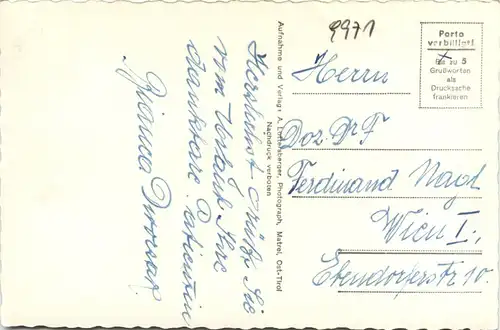 9971
Porto
verbilligt!
Bis zu 5
Grußworten
als
Drucksache
frankieren
Herrn
Doz. Dr F
Ferdinand Nagl
Wien I.,
Ebendorferstr 10.
Aufnahme und Verlag: A. Lottersberger, Photograph, Matrei, Ost-Tirol
Nachdruck verboten
Herzlichst grüßt Sie
vom Urlaub Ihre
dankbare Patientin
Bianca